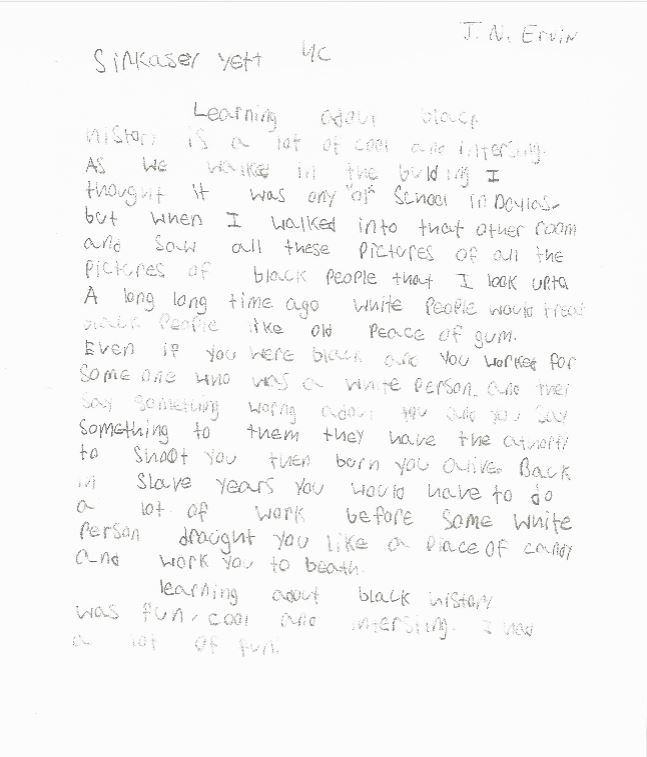 J. N. Ervin
Sinkaser Yett 4C
Learning about black
history is a lot of cool and intersing.
As we walked in the bulding I
thought it was any "ol" School in Dallas.
but when I walked into that other room
and saw all these pictures of all the
pictures of black people that I look upta
A long long time ago white people would treat
black people like old peace of gum.
Even if you were black and you worked for
some one who was a white person. and they
say something worng about you and you say
something to them they have the
to shoot you then born you alive. Back
in slave years you would have to do
a lot of work before some white
person brought you like a piace of candy
and work you to beath.
learning about black history
was fun, cool and intersting. I had
a lot of fun.